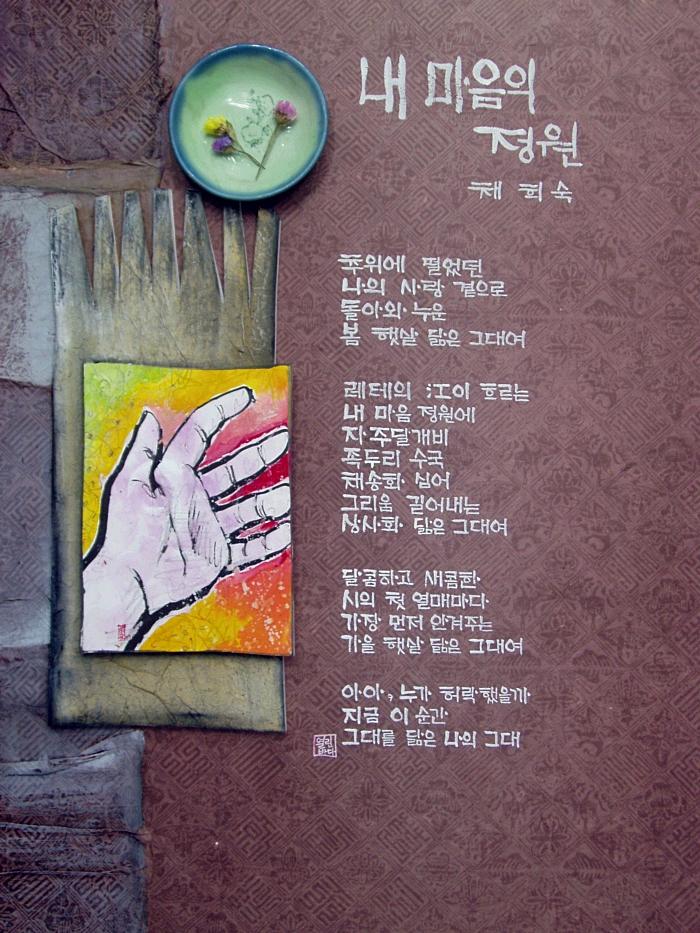 내 마음의
정원
채 희 숙
추위에 떨었던
나의 사랑 곁으로
돌아와 누운
봄 햇살 닮은 그대여
레테의 江이 흐르는
내 마음 정원에
자주달개비
족두리 수국
채송화 심어
그리움 길어내는
상사화 닮은 그대여
달콤하고 새콤한
시의 첫 열매마다
가장 먼저 안겨주는
가을 햇살 닮은 그대여
아아, 누가 허락했을까
지금 이 순간
그대를 닮은 나의 그대
열린
바다